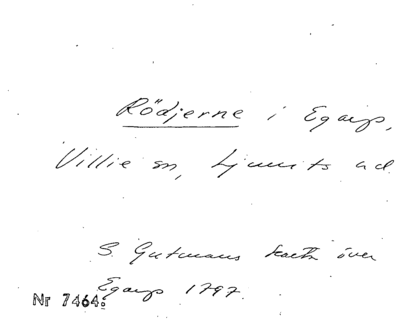 Rödjerne i Egarp,
Villie sn, Ljunits hd.
S. Gutmans karta över
Egarp 1797.
Nr 7464: